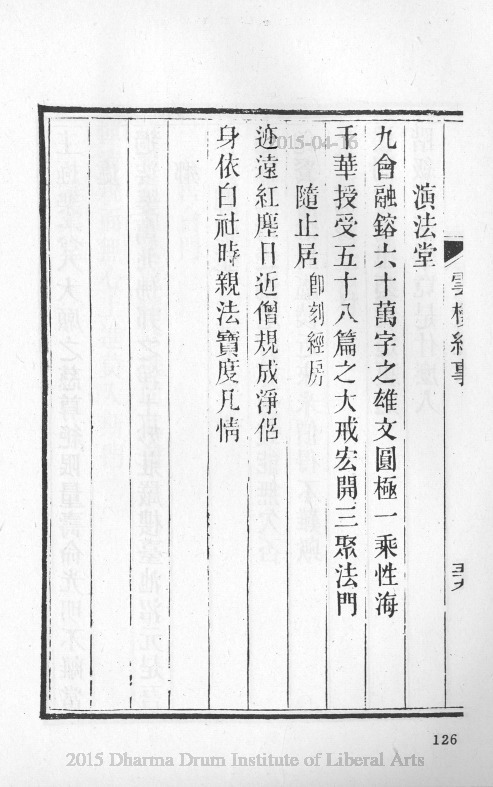 雲棲紀事
演法堂
九會融鎔六十萬字之雄文圓極一乘性海
千華授受五十八篇之大戒宏開三聚法門
隨止居即刻經房
迹遠紅塵日近僧規成淨侶
身依白社時親法寶度凡情
2015-04-16
126
2015 Dharma Drum Institute of Liberal Arts